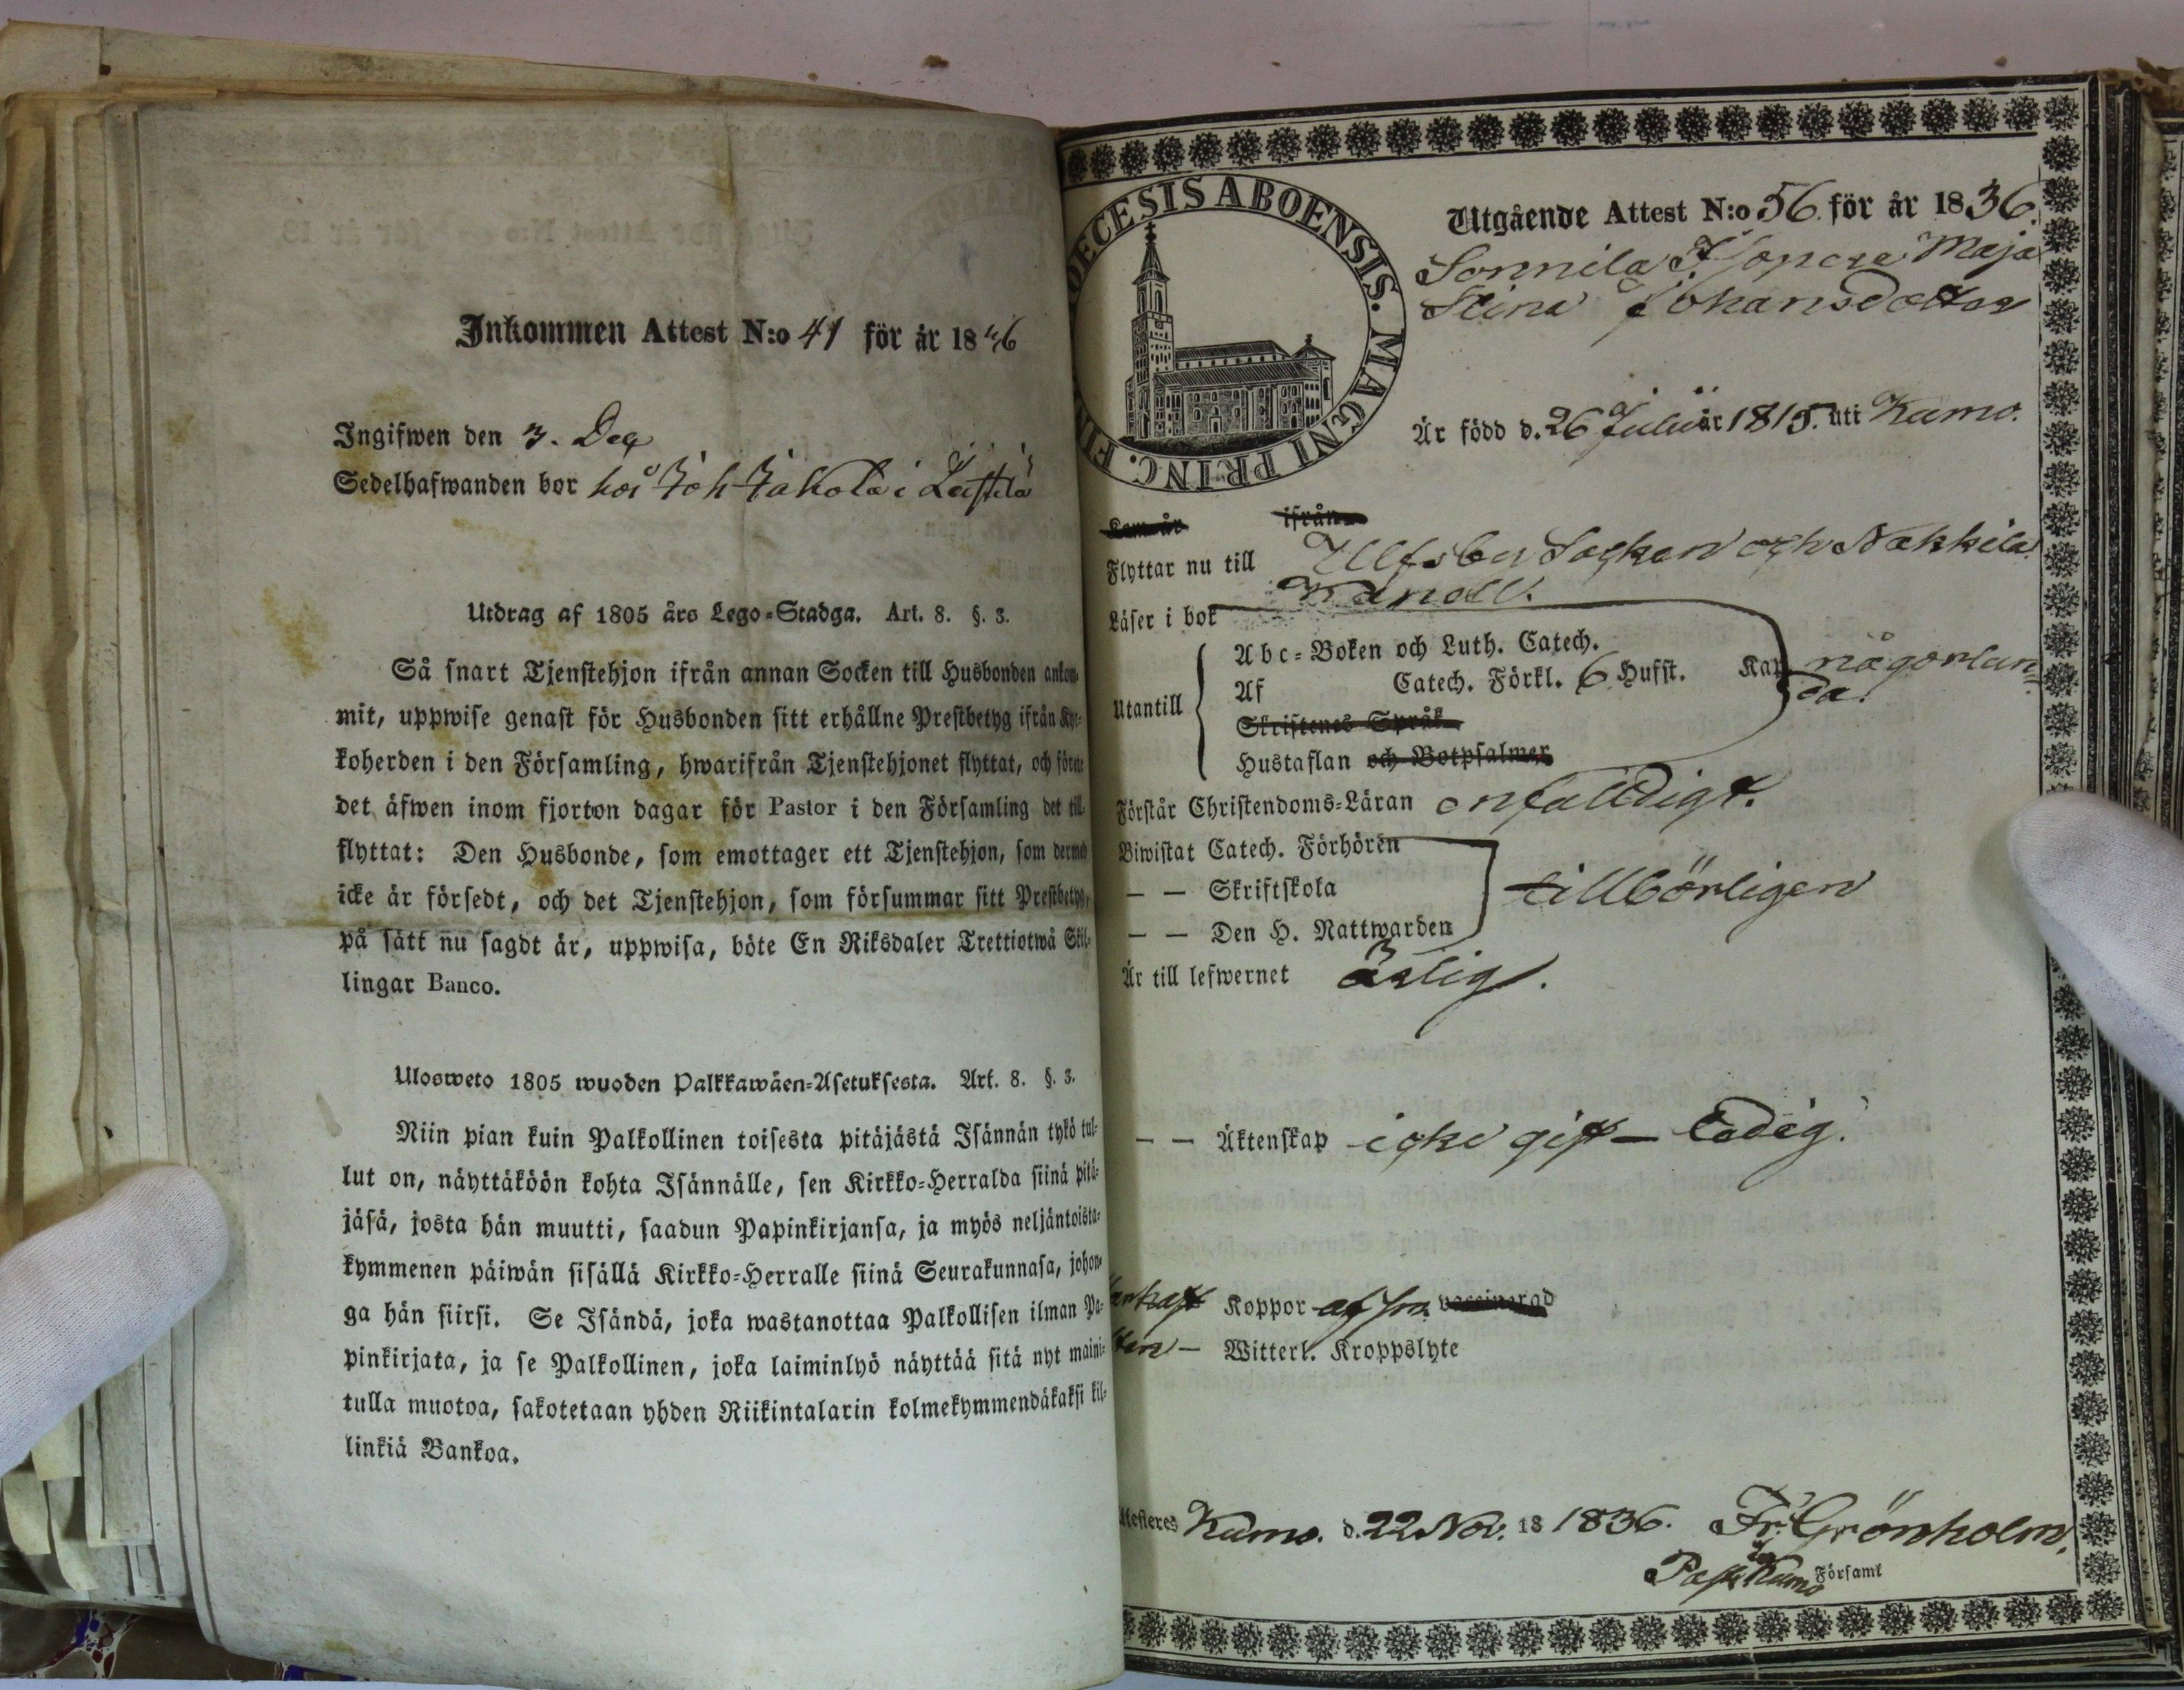 Inkommen Attest N:o 41 för år 18
Ingifwen den 3. Dec
Sedelhafwanden bor hos Joh Jakola i Leistilä
Utdrag af 1805 års Lego=Stadga. Art. 8. §. 3.
Så snart Tjenstehjon ifrån annan Socken till Husbonden ankom=
mit, uppwise genast för Husbonden sitt erhållne Prestbetyg ifrån Kyr=
koherden i den Församling, hwarifrån Tjenstehjonet flyttat, och förete
det äfwen inom fjorton dagar för Pastor i den Församling det till
flyttat: Den Husbonde, som emottager ett Tjenstehjon, som dermed
icke är försedt, och det Tjenstehjon, som försummar sitt Prestbetyg,
på sätt nu sagdt är, uppwisa, böte En Riksdaler Trettiotwå Skil=
lingar Banco.
Ulosweto 1805 wuoden Palkkawäen=Asetuksesta. Art. 8. §. 3.
Niin pian kuin Palkollinen toisesta pitäjästä Isännän tykö tul=
lut on, näyttäköön kohta Isännälle, sen Kirkko=Herralda siinä pitä=
jäsä, josta hän muutti, saadun Papinkirjansa, ja myös neljäntoista=
kymmenen päiwän sisällä Kirkko=Herralle siinä Seurakunnasa, johon=
ga hän siirsi. Se Isändä, joka wastanottaa Palkollisen ilman Pa=
pinkirjata, ja se Palkollinen, joka laiminlyö näyttää sitä nyt maini=
tulla muotoa, sakotetaan yhden Riikintalarin kolmekymmendäkaksi kil=
linkiä Bankoa.
OECESIS ABOENSIS. MAGNI PRINC. FIN
Utgående Attest N:o 56 för år 1836.
Sonnila Maja
Stina Johansdotter
Är född d. 26 Julii år 1815. uti Kumo.
Kom år ifrån
Flyttar nu till Ulfsby Socken och Nakkila
Kapell.
Läser i bok
Abc=Boken och Luth. Catech.
Utantill Af Catech. Förkl. 6 Hufst. Kap någorlun=
da.
Skriftenes Språk
Hustaflan och Botpsalmer
Förstår Christendoms=Läran enfalldigt.
Biwistat Catech. Förhören
— — Skriftskola tillbörligen
— — Den H. Nattwarden
Är till lefwernet ärlig.
— — Äktenskap icke gift — Ledig.
Koppor vaccinerad
— Witterl. Kroppslyte
Attesteres Kumo. d. 22 Nov. 18 1836. Fr. Grönholm.
Past. i Kumo Församl